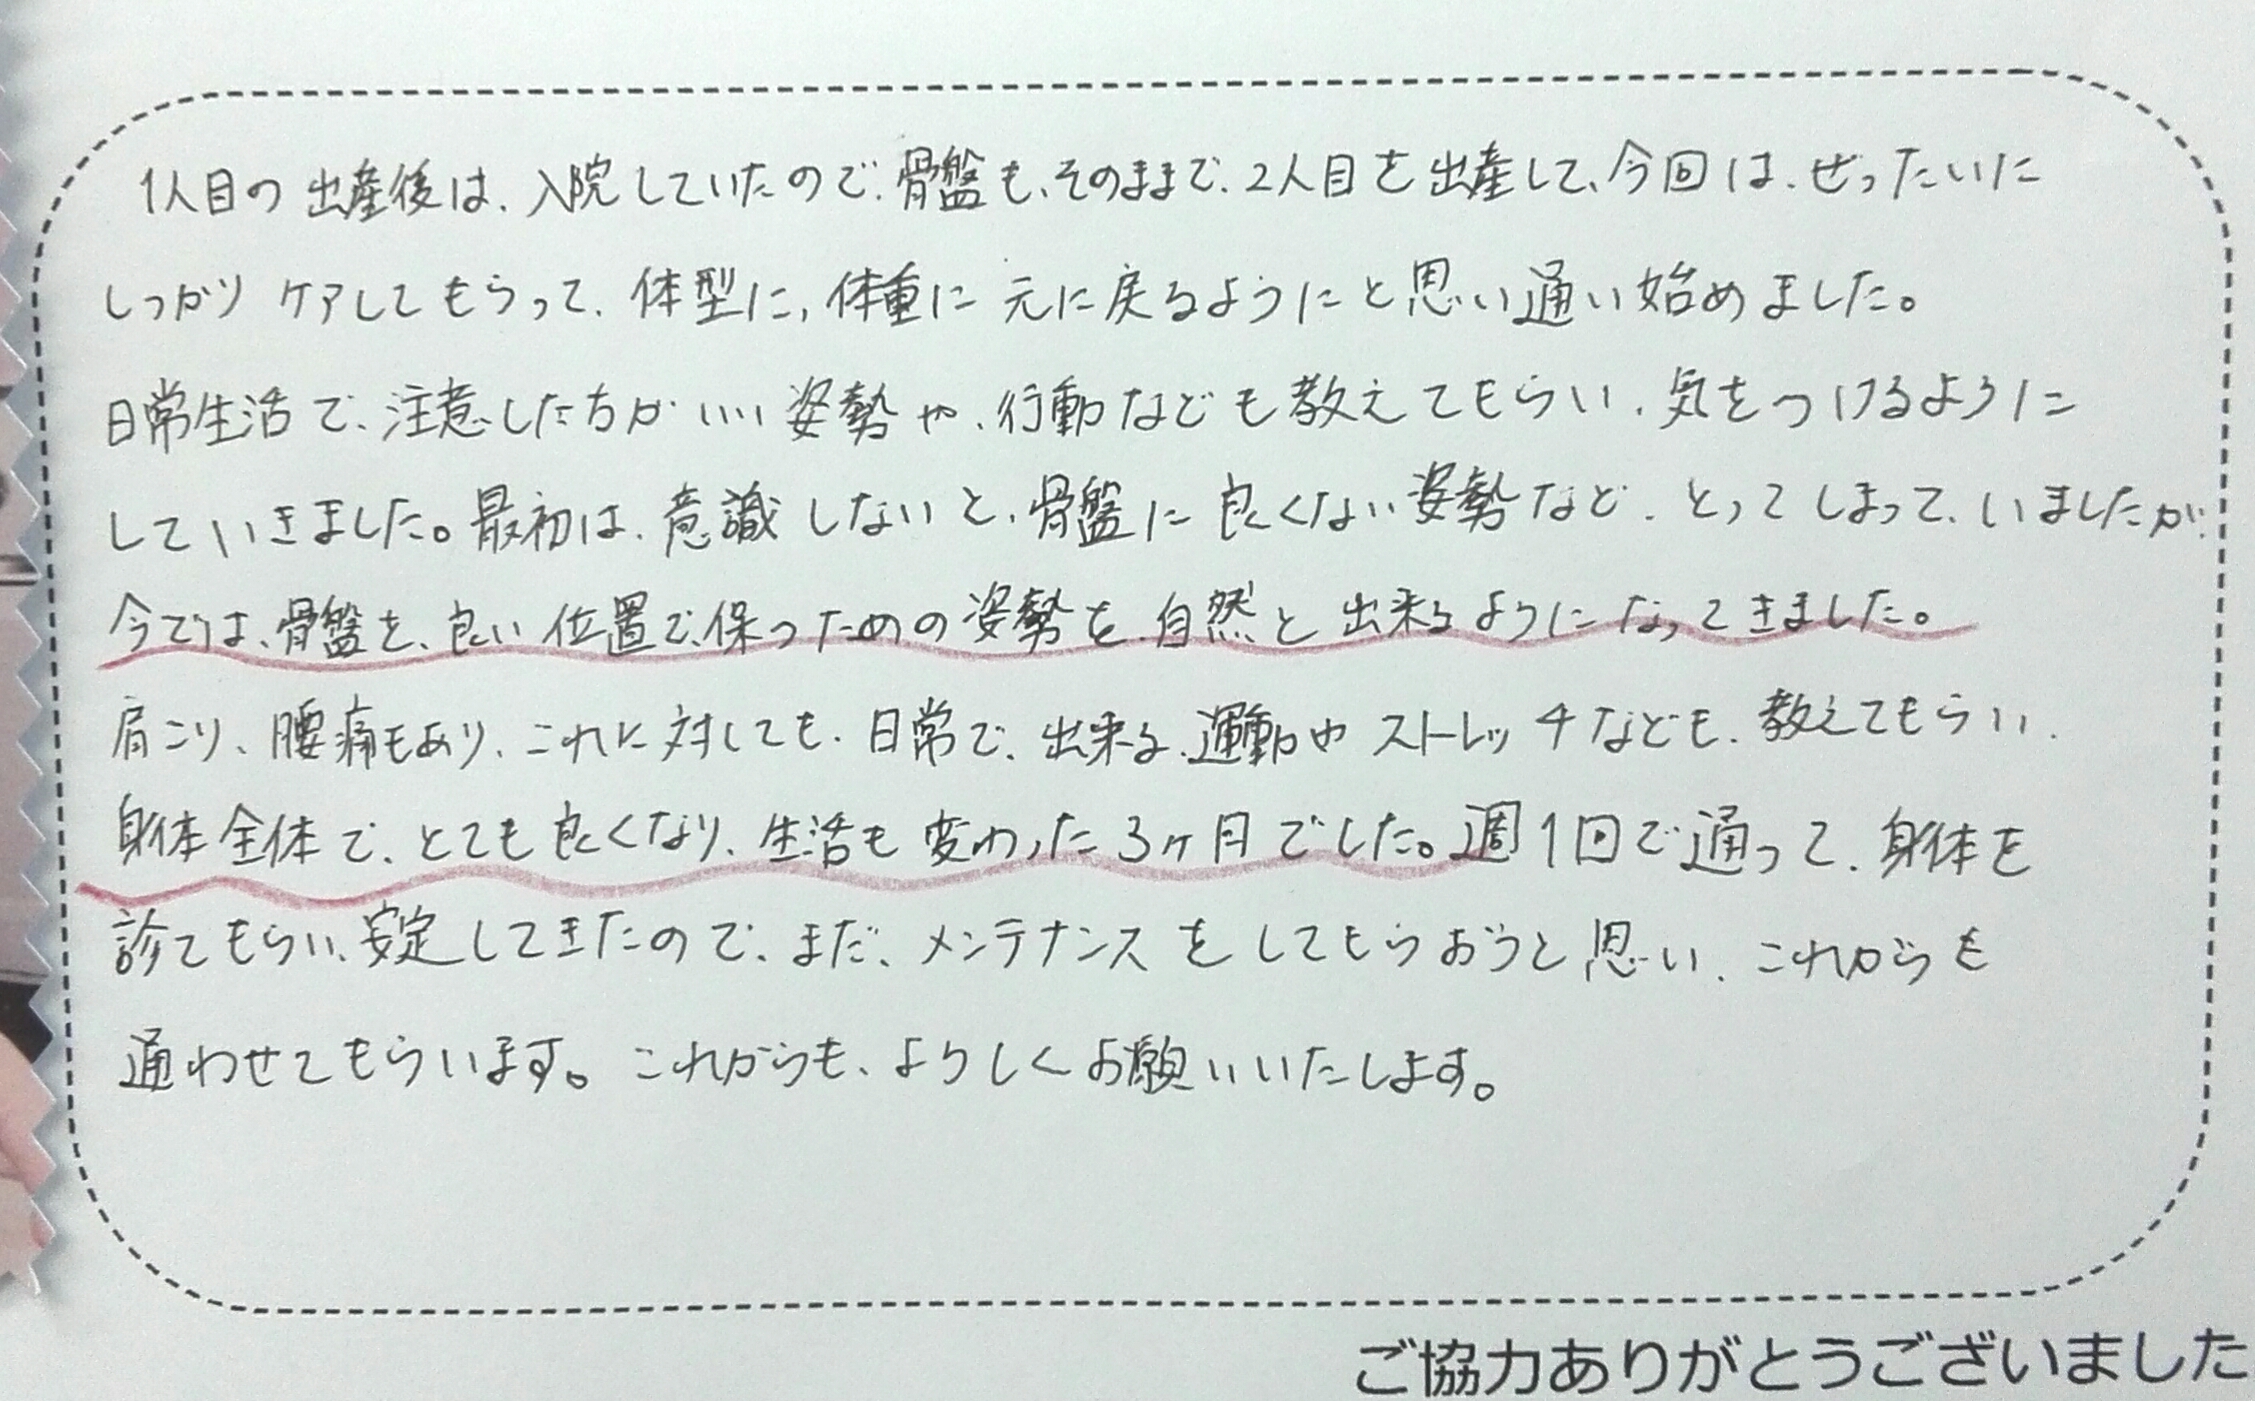 1人目の出産後は、入院していたので、骨盤も、そのままで、2人目を出産して、今回は、ぜったいに
しっかりケアしてもらって、体型に、体重に元に戻るようにと思い通い始めました。
日常生活で、注意した方がいい姿勢や、行動なども教えてもらい、気をつけるように
していきました。最初は、意識しないと、骨盤に良くない姿勢など、とってしまって、いましたが、
今では、骨盤を、良い位置で、保つための姿勢を、自然と出来るようになってきました。
肩こり、腰痛もあり、これに対しても、日常で、出来る、運動やストレッチなども、教えてもらい、
身体全体で、とても良くなり、生活も変わった3ヶ月でした。週1回で通って、身体を
診てもらい、安定してきたので、まだ、メンテナンスをしてもらおうと思い、これからも
通わせてもらいます。これからも、よろしくお願いいたします。
ご協力ありがとうございました